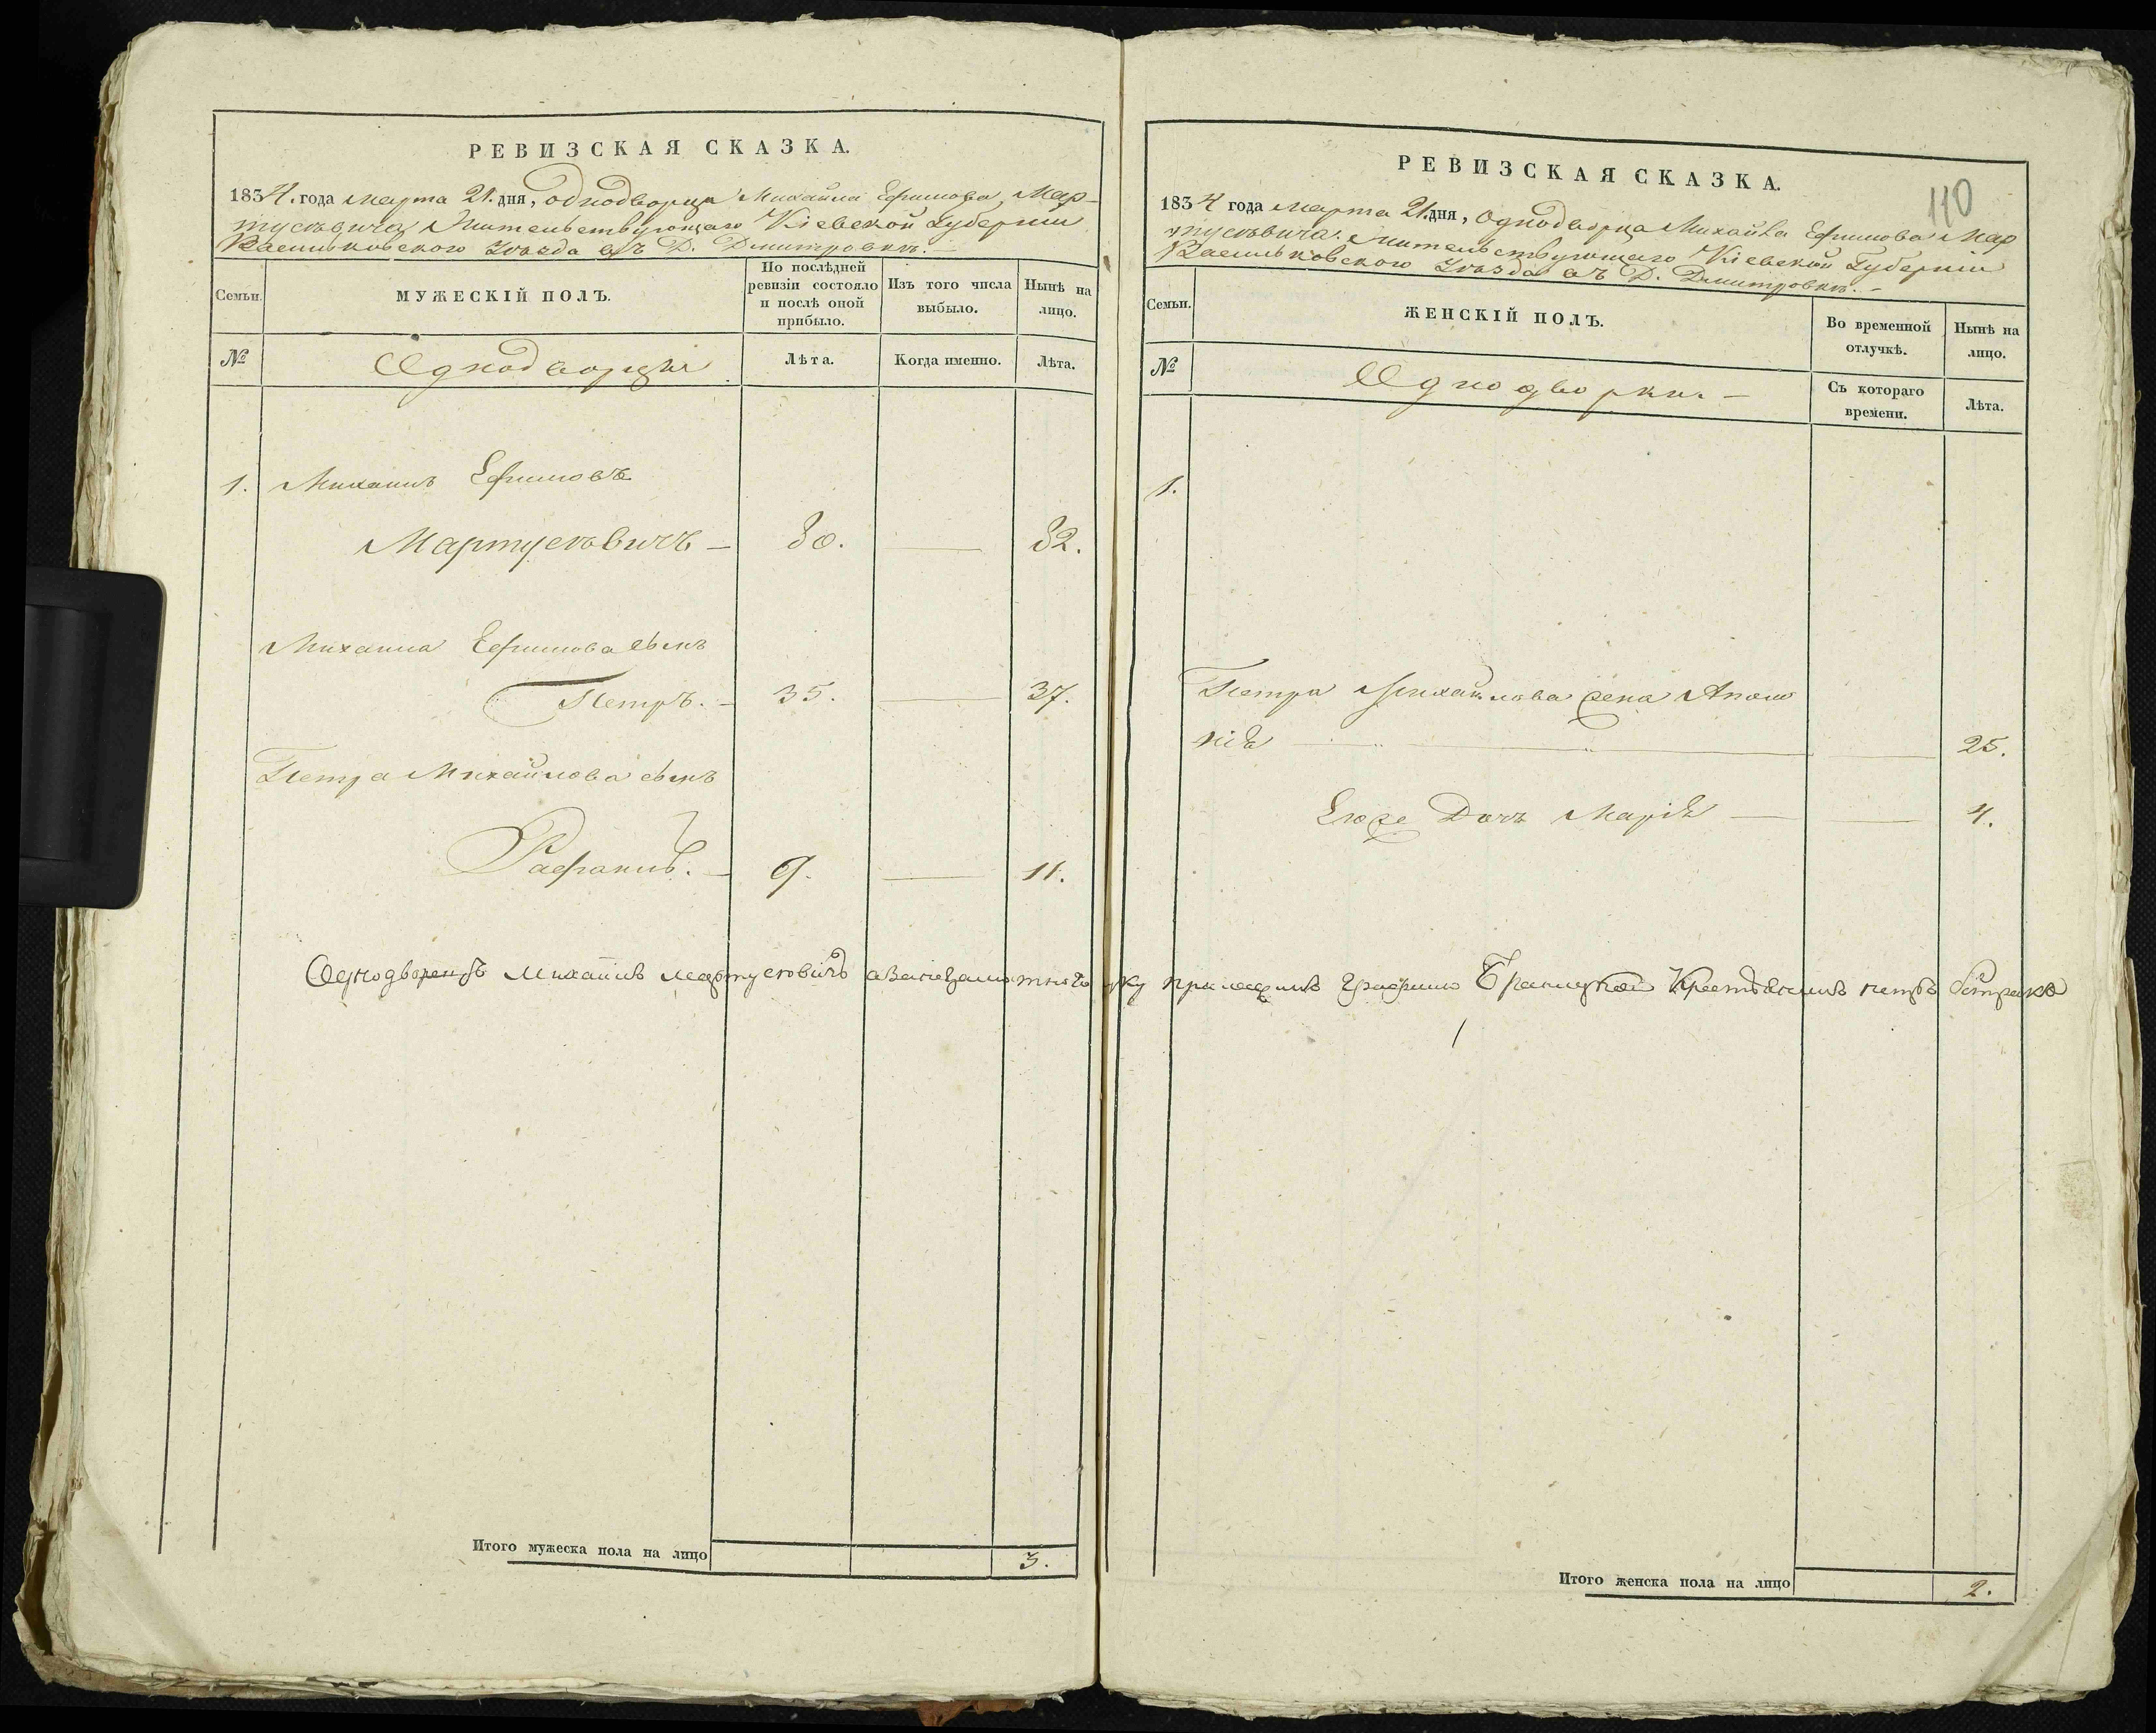 РЕВИЗСКАЯ СКАЗКА.
1834. года марта 21. дня, однодворца Михайла Ефимова, Мар-
тусевича Жительствующаго Кіевской Губерніи
Васильковского Уезда въ Д. Дмитровкъ.
Семьи.
МУЖЕСКІЙ ПОЛЪ.
По послѣдней ревизіи состояло и послѣ оной прибыло.
Изъ того числа выбыло.
Нынѣ на лицо.
№
Однодворцы
Лѣта.
Когда именно.
Лѣта.
1. Михаилъ Ефимовъ
Мартусевичъ — 80. — 82.
Михаила Ефимова сынъ
Петръ. — 35. — 37.
Петра Михайлова сынъ
Рафаилъ. — 9. — 11.
Однодворецъ Михаилъ Мартусевичъ
Итого мужеска пола на лицо 3.
РЕВИЗСКАЯ СКАЗКА.
110
1834 года марта 21. дня, Однодворца Михайла Ефимова Мар
тусевича. Жительствующаго Кіевской Губерніи
Васильковского Уезда въ Д. Дмитровкъ. —
Семьи.
ЖЕНСКІЙ ПОЛЪ.
Во временной отлучкѣ.
Нынѣ на лицо.
№
Однодворки —
Съ котораго времени.
Лѣта.
1.
Петра Михайлова жена Апало
нія — — 25.
Егоже Дочь Марія — — 4.
Браницкой Крестьянинъ петръ
Итого женска пола на лицо 2.